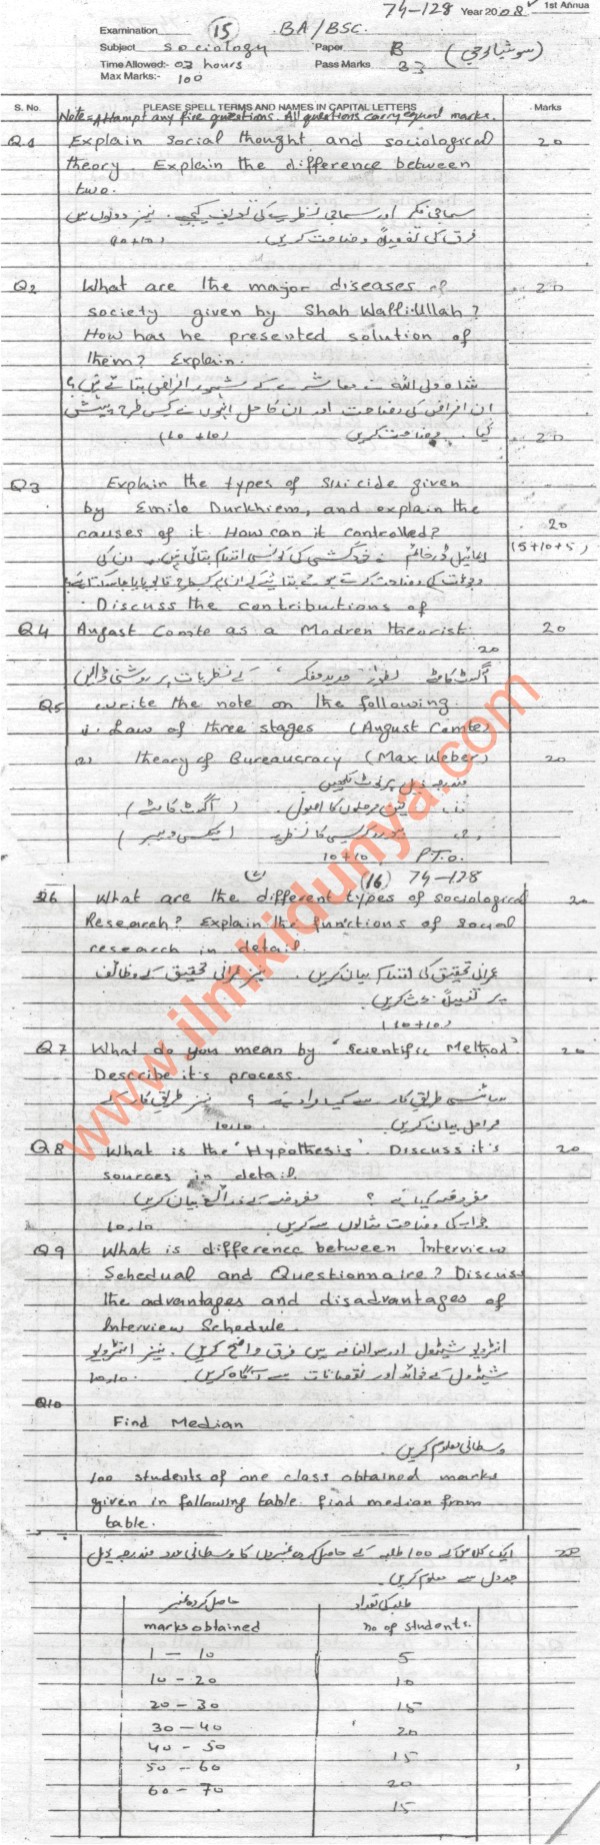 74-128 Year 2008 1st Annua
Examination (15) BA/BSC.
Subject Sociology Paper B (سوشیالوجی)
Time Allowed:- 03 hours Pass Marks 33
Max Marks:- 100
S. No. PLEASE SPELL TERMS AND NAMES IN CAPITAL LETTERS Marks
Note= Attampt any five questions. All questions carry equal marks.
Q.1 Explain Social thought and sociological 20
theory Explain the difference between
two.
سماجی فکر اور سماجی نظریہ کی تعریف کیجیے۔ نیز دونوں میں
فرق کی تفصیلاً وضاحت کریں۔ (10+10)
Q2 What are the major diseases of 20
society given by Shah Walli-Ullah?
How has he presented solution of
them? Explain.
شاہ ولی اللہ نے معاشرے کے مشہور امراض بتائے ہیں؟
ان امراض کی وضاحت اور ان کا حل انہوں نے کس طرح پیش
کیا۔ وضاحت کریں (10+10) 20
Q3 Explain the types of Suicide given
by Emile Durkhiem, and explain the
causes of it. How can it controlled? 20
(5+10+5)
Discuss the contributions of
Q4 August Comte as a Modren theorist. 20
20
آگسٹ کامٹے بطور جدید مفکر، کے نظریات پر روشنی ڈالیں
Q5 write the note on the following.
1. Law of three stages (August Comte)
2) theory of Bureausracy (Max Weber) 20
مندرجہ ذیل پر نوٹ لکھیں
1. تین مرحلوں کا اصول۔ (آگسٹ کامٹے)
2. بیوروکریسی کا نظریہ (میکس ویبر)
10+10, P.T.O.
(16) 74-128
Q6 What are the different types of sociological 20
Research? Explain the functions of social
research in detail.
عمرانی تحقیق کی اقسام بیان کریں۔ نیز عمرانی تحقیق کے وظائف
پر تفصیلاً بحث کریں۔
(10+10)
Q7 What do you mean by 'Scientific Method'. 20
Describe it's process.
سائنسی طریق کار سے کیا مراد ہے؟ نیز طریق کار کے
مراحل بیان کریں۔ 10,10
Q8 What is the 'Hypothesis'. Discuss it's 20
sources in detail.
مفروضہ کیا ہے؟ مفروضہ کے ذرائع بیان کریں
جواب کی وضاحت مثالوں سے کریں۔ 10,10
Q9 What is difference between Interview
Schedual and Questionnaire? Discuss
the advantages and disadvantages of
Interview Schedule.
انٹرویو شیڈول اور سوالنامہ میں فرق واضح کریں۔ نیز انٹرویو
شیڈول کے فوائد اور نقصانات سے آگاہ کریں۔ 10,10
Q10
Find Median
وسطانی معلوم کریں۔
100 students of one class obtained marks
given in following table. find median from
table.
ایک کلاس کے 100 طلبہ کے حاصل کردہ نمبروں کا وسطانی عدد مندرجہ ذیل 20
جدول سے معلوم کریں۔
حاصل کردہ نمبر طلبہ کی تعداد
marks obtained no of students.
1 — 10 5
10 - 20 10
20 - 30 15
30 - 40 20
40 - 50 15
50 - 60 20
60 - 70 15
www.ilmkidunya.com